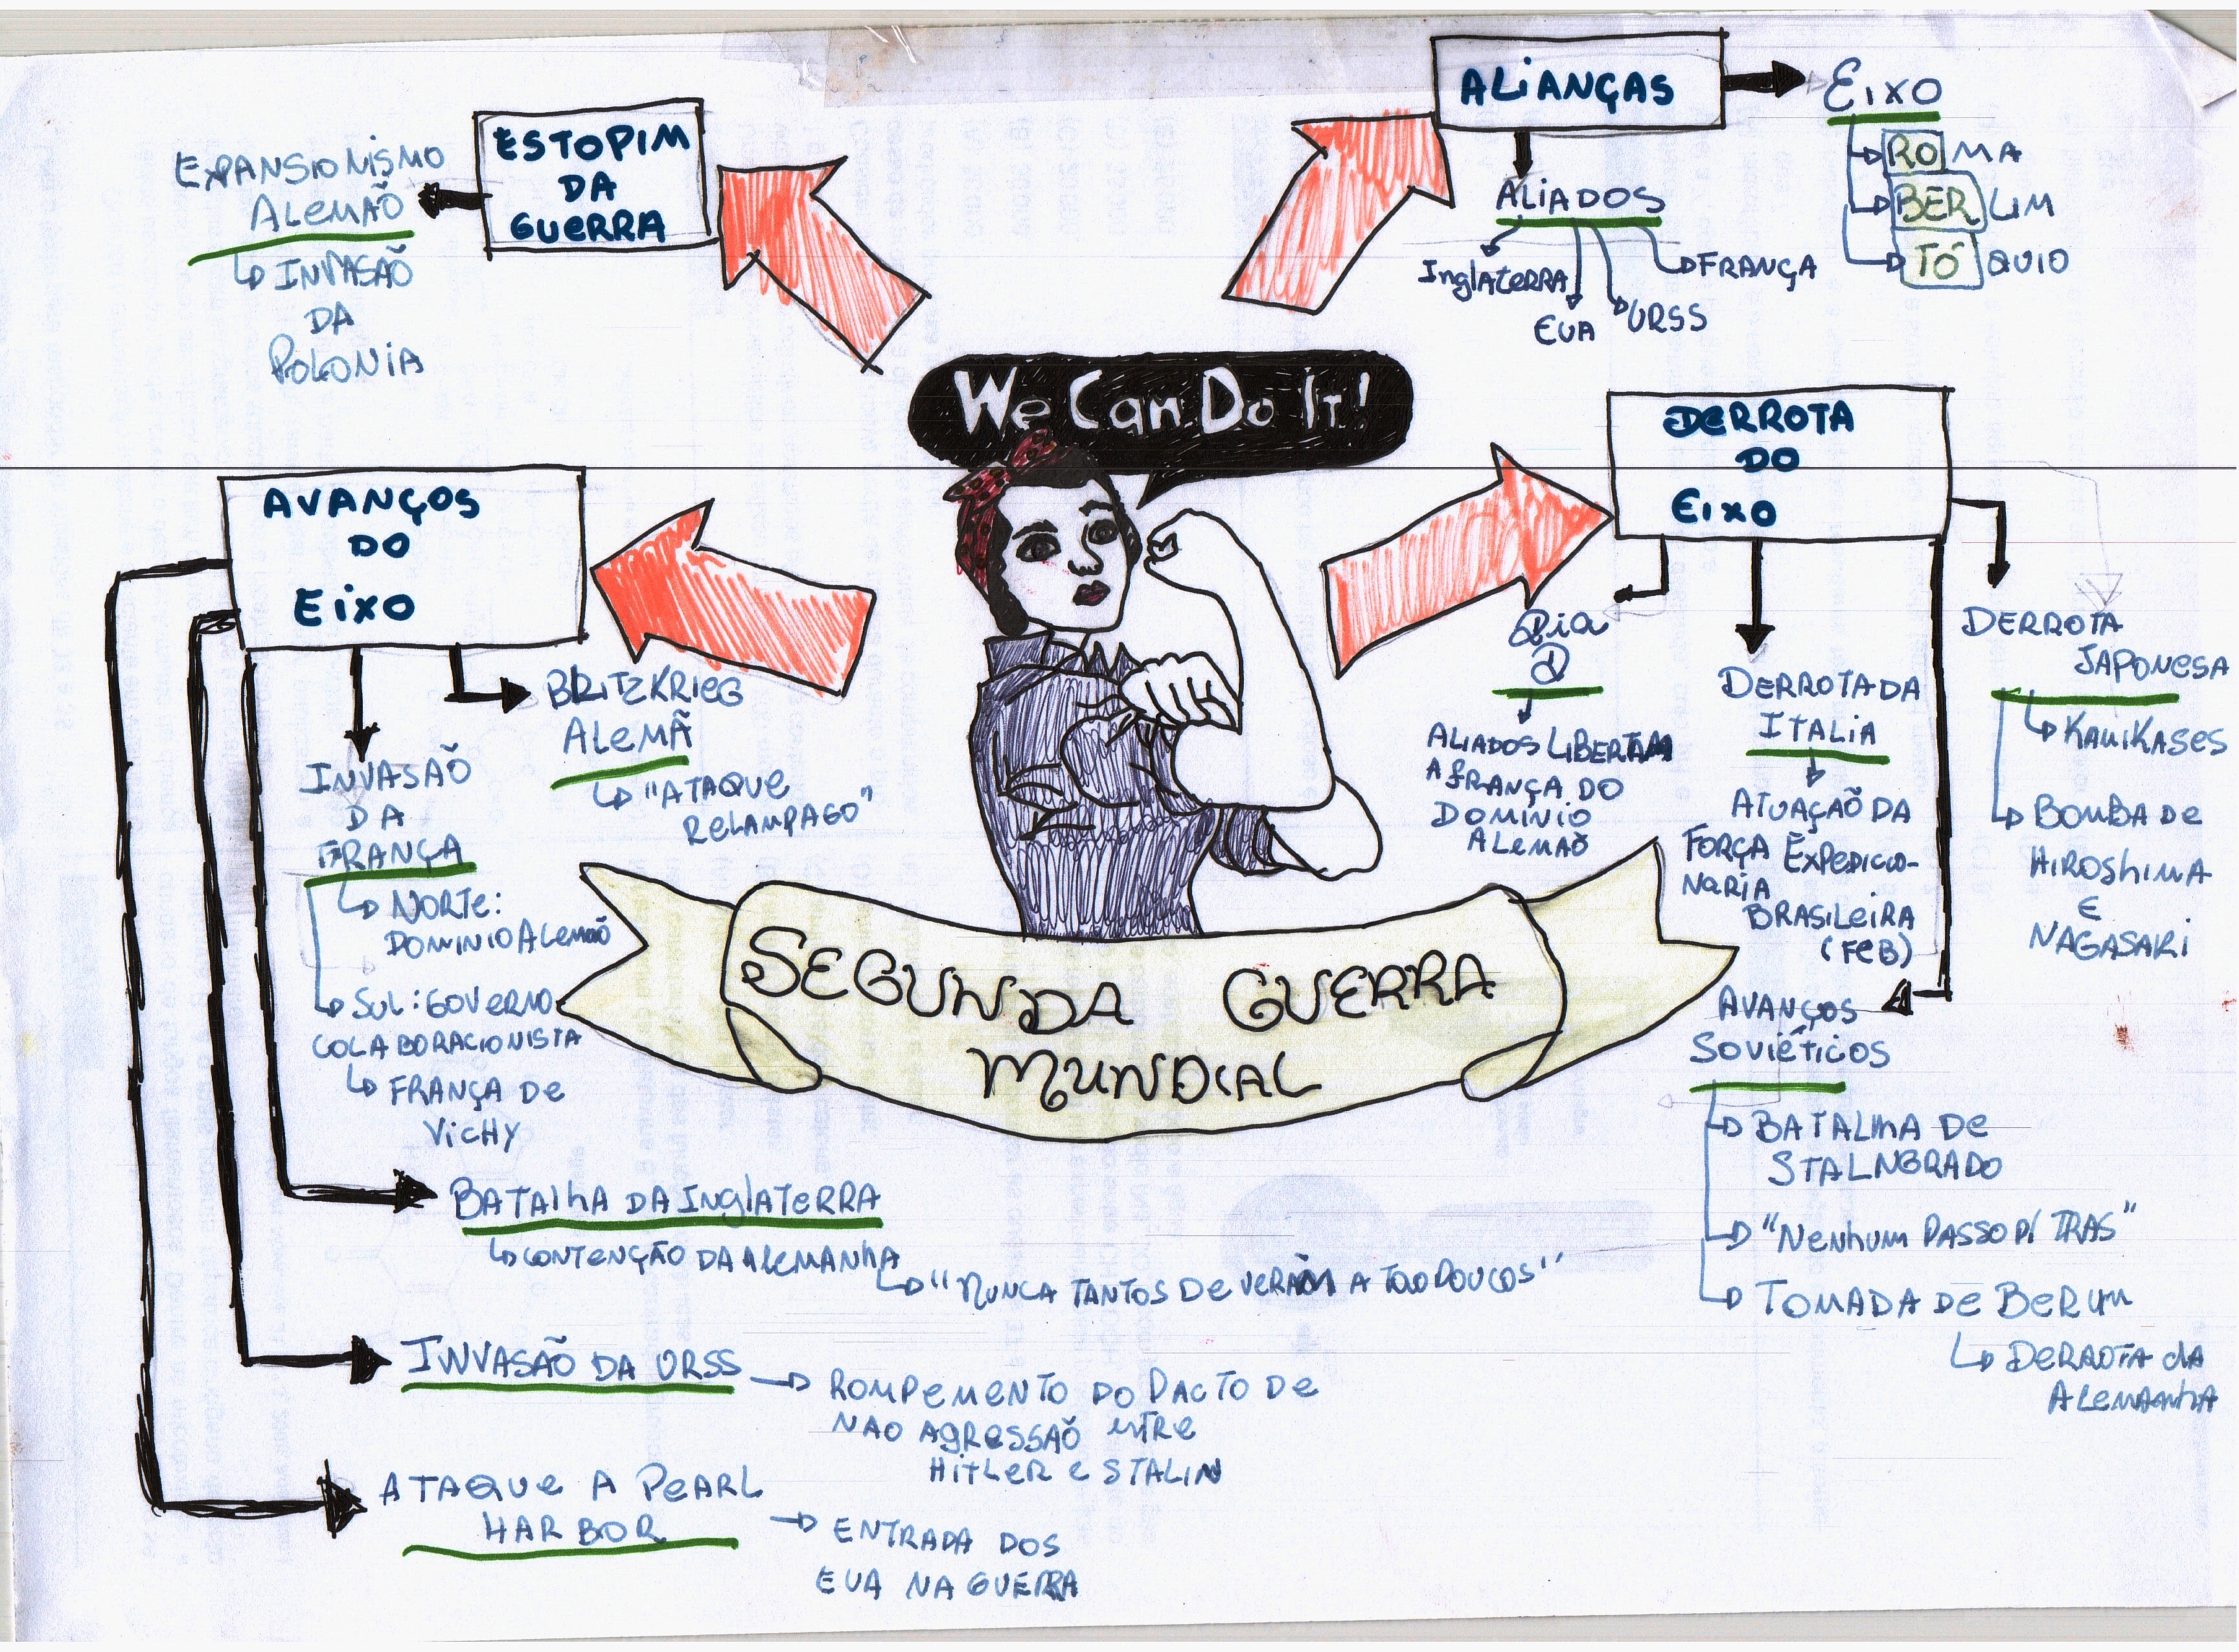 ESTOPIM
DA
GUERRA
EXPANSIONISMO
ALEMÃO
INVASÃO
DA
POLONIA
ALIANÇAS
EIXO
ROMA
BERLIM
TÓQUIO
ALIADOS
INGLATERRA
EUA
URSS
FRANÇA
We Can Do It!
AVANÇOS
DO
EIXO
BLITZKRIEG
ALEMÃ
"ATAQUE
RELAMPAGO"
INVASÃO
DA
FRANÇA
NORTE:
DOMINIO ALEMÃO
SUL: GOVERNO
COLABORACIONISTA
FRANÇA DE
VICHY
BATALHA DA INGLATERRA
CONTENÇÃO DA ALEMANHA
"NUNCA TANTOS DEVERAM A TÃO POUCOS"
INVASÃO DA URSS
ROMPEMENTO DO PACTO DE
NAO AGRESSÃO ENTRE
HITLER E STALIN
ATAQUE A PEARL
HARBOR
ENTRADA DOS
EUA NA GUERRA
DERROTA
DO
EIXO
Dia
D
ALIADOS LIBERTAM
A FRANÇA DO
DOMÍNIO
ALEMÃO
DERROTA DA
ITALIA
ATUAÇÃO DA
FORÇA EXPEDICIO-
NARIA
BRASILEIRA
(FEB)
DERROTA
JAPONESA
KAMIKASES
BOMBA DE
HIROSHIMA
E
NAGASAKI
AVANÇOS
SOVIÉTICOS
BATALHA DE
STALNGRADO
"NENHUM PASSO P/ TRAS"
TOMADA DE BERLIM
DERROTA DA
ALEMANHA
SEGUNDA GUERRA
MUNDIAL